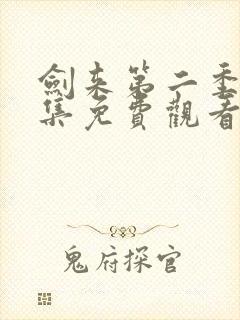 劍来第二季
集免費觀看
鬼府探官